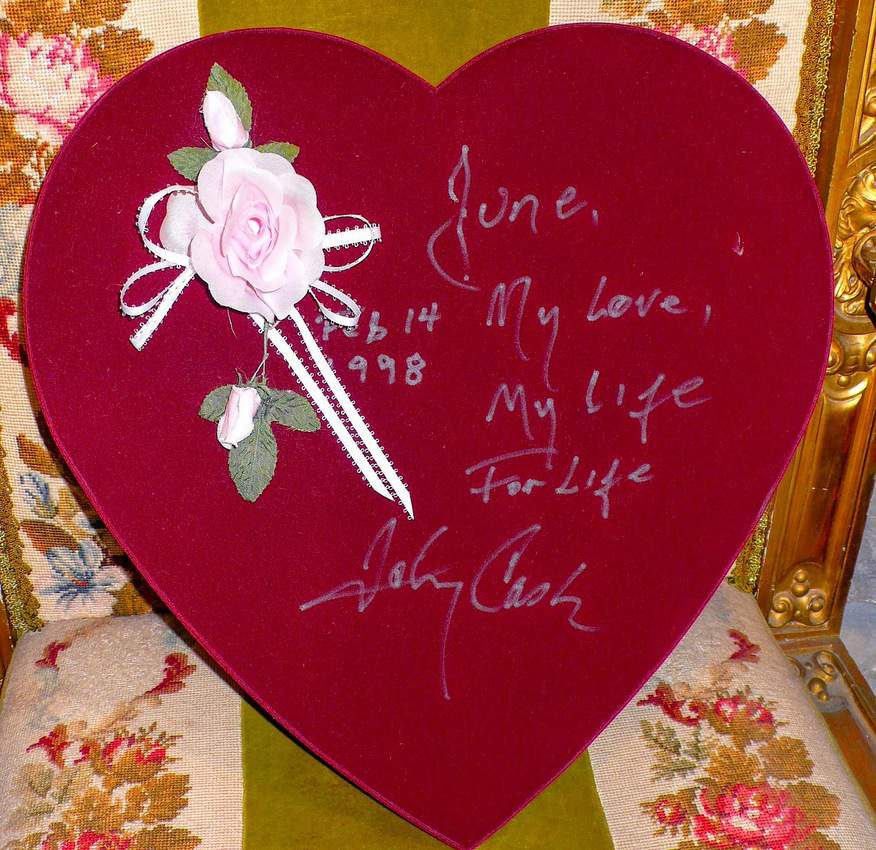 June,
My Love,
My Life
For Life
Feb 14
1998
Johnny Cash